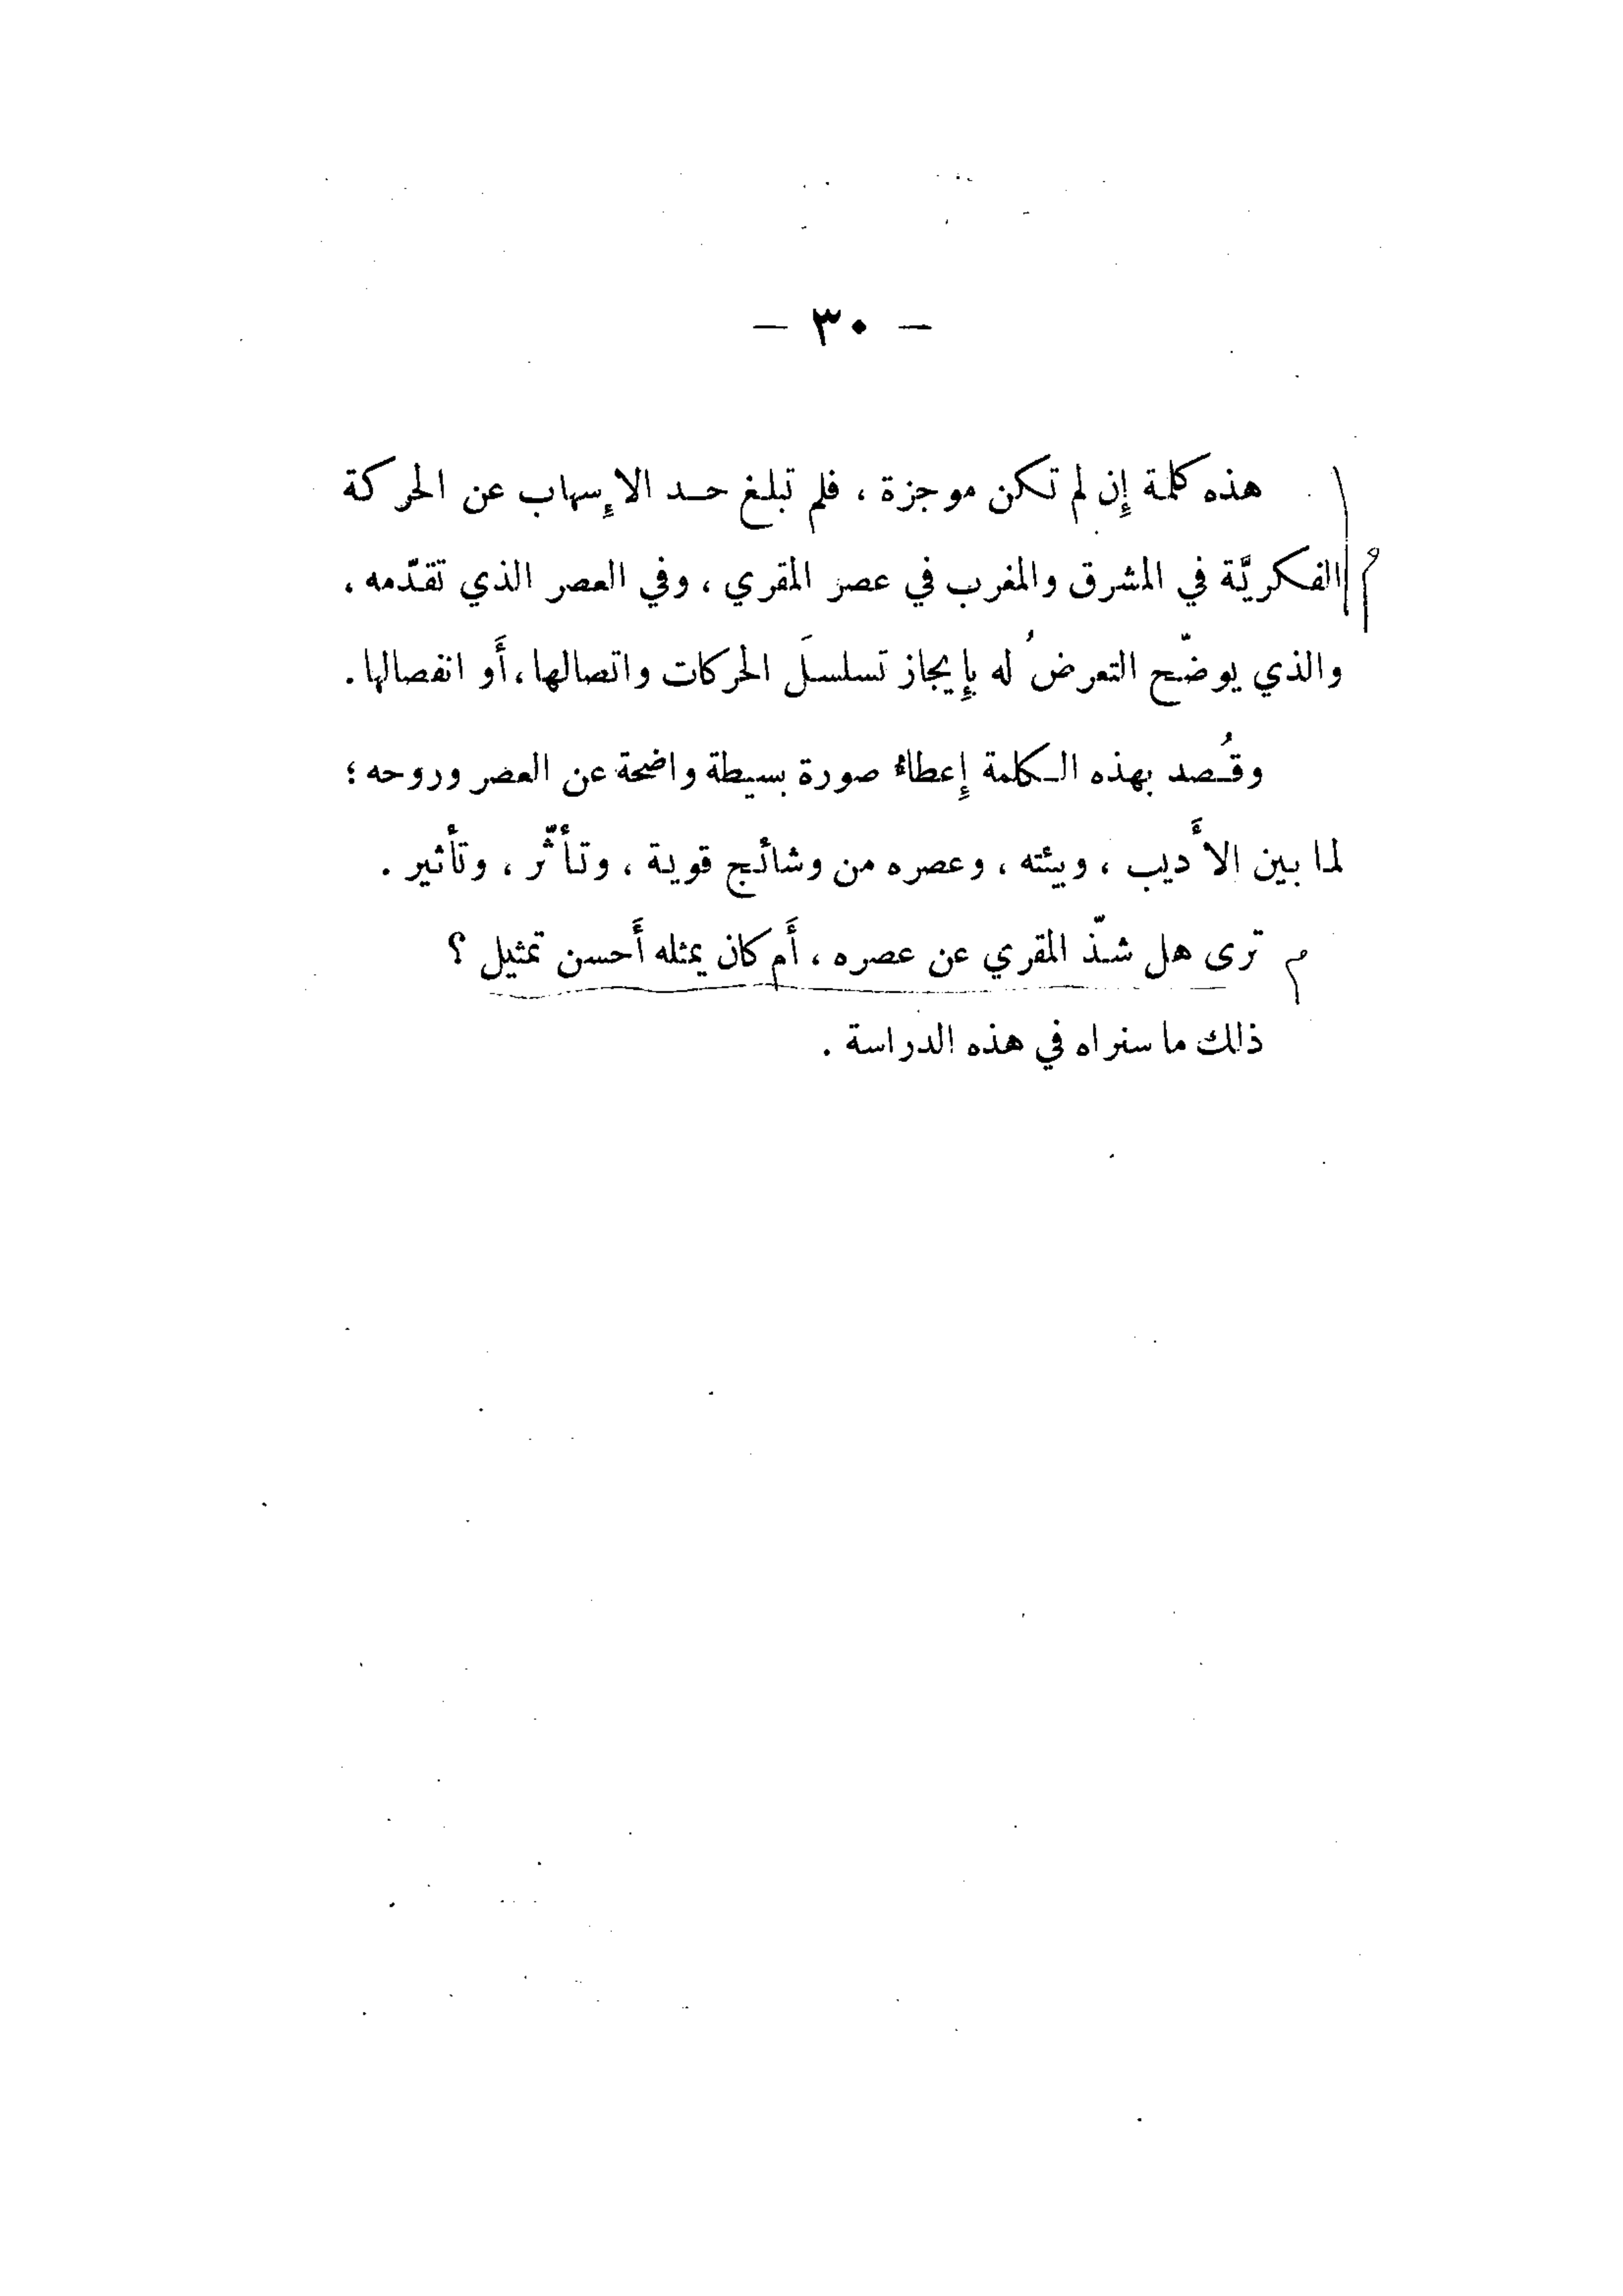 — ٣٠ —
هذه كلمة إِن لم تكن موجزة ، فلم تبلغ حد الإِسهاب عن الحركة
الفكريَّة في المشرق والمغرب في عصر المقري ، وفي العصر الذي تقدّمه ،
والذي يوضّح التعرضُ له بإِيجاز تسلسلَ الحركات واتصالها ، أَو انفصالها .
وقُصد بهذه الكلمة إِعطاءُ صورة بسيطة واضحة عن العصر وروحه ؛
لما بين الأَديب ، وبيئته ، وعصره من وشائج قوية ، وتأثّر ، وتأثير .
م ترى هل شذّ المقري عن عصره ، أَم كان يمثله أَحسن تمثيل ؟
ذلك ما سنراه في هذه الدراسة .